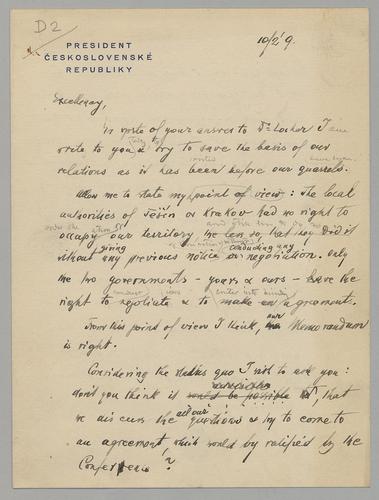 D 2
PRESIDENT
ČESKOSLOVENSKÉ
REPUBLIKY
10/2 '9.
Excellency,
In spite of your answer to Dr Locher I
write to you & try to save the basis of our
relations as it has been before our quarrels.
Allow me to state my point of view: the local
autorities of Těšín or Krakov had no right to
occupy our territory the less so, that they did it
giving conducting any
without any previous notice or negotiation. Only
the two governments - yours & ours - have the
right to negotiate & to make an agreement.
From this point of view I think, our Memorandum
is right.
Considering the status quo I wish to ask you:
don't you think it would be possible, that
we discuss all our questions & try to come to
an agreement, which would by ratified by the
Conference?